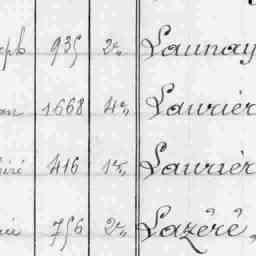 eph 935 2e, Launay
an 1.668 4e, Laurier
éré 416 1re, Laurièr
cie 756 2e, Lazéré,